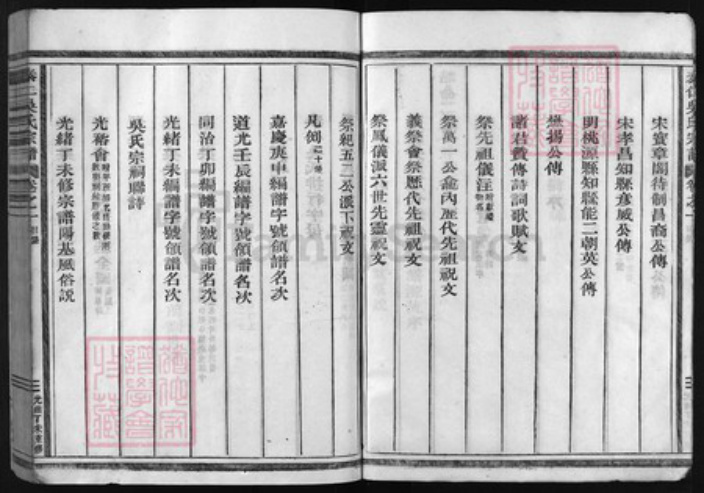 宋寶章閣待制昌裔公傳
宋孝昌知縣彥威公傳
明桃源縣知縣能二朝英公傳
公傳
諸君贊傳詩詞歌賦文
祭先祖儀注
祭萬一公龕內歷代先祖祝文
義祭會祭歷代先祖祝文
祭鳳儀派六世先靈祝文
祭紀五二公派下祝文
凡例
嘉慶庚申編譜字號領譜名次
道光壬辰編譜字號領譜名次
同治丁卯編譜字號領譜名次
光緒丁未編譜字號領譜名次
吳氏宗祠聯詩
光裕會
光緒丁未修宗譜陽基風俗說
吳氏宗譜
光緒丁未重修